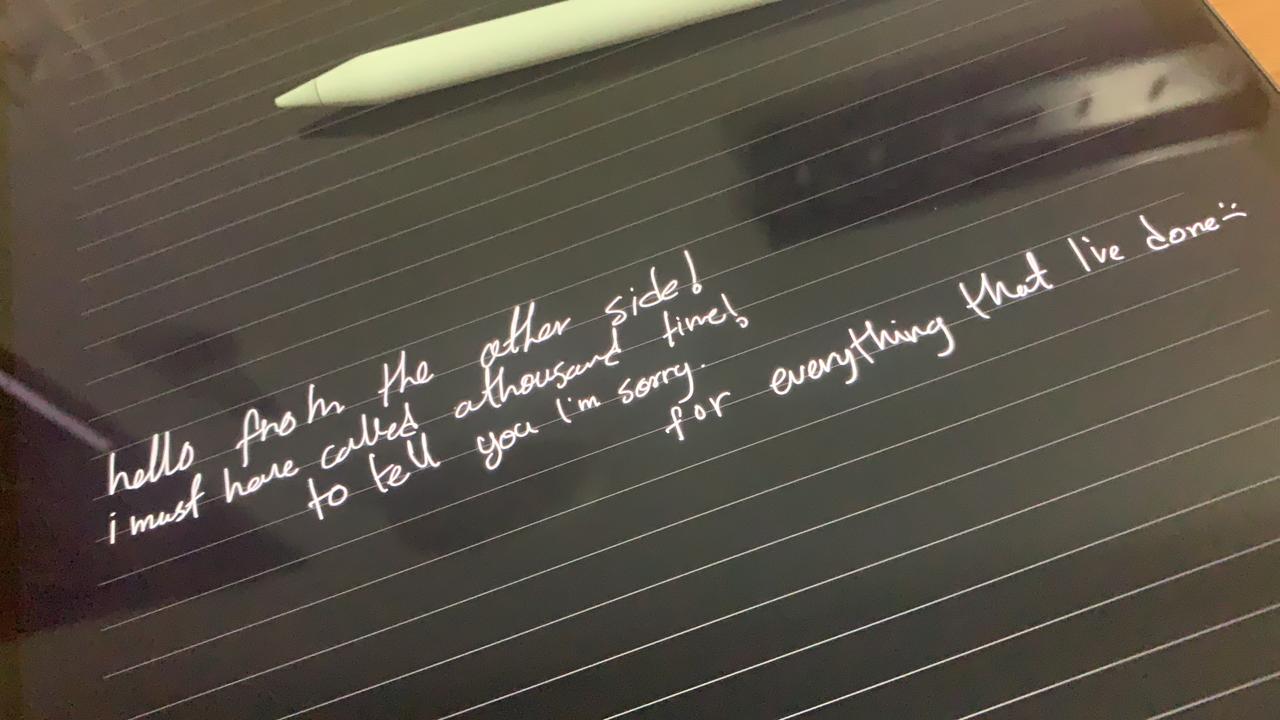 hello from the other side!
i must have called a thousand time!
to tell you I'm sorry.
for everything that I've done :(